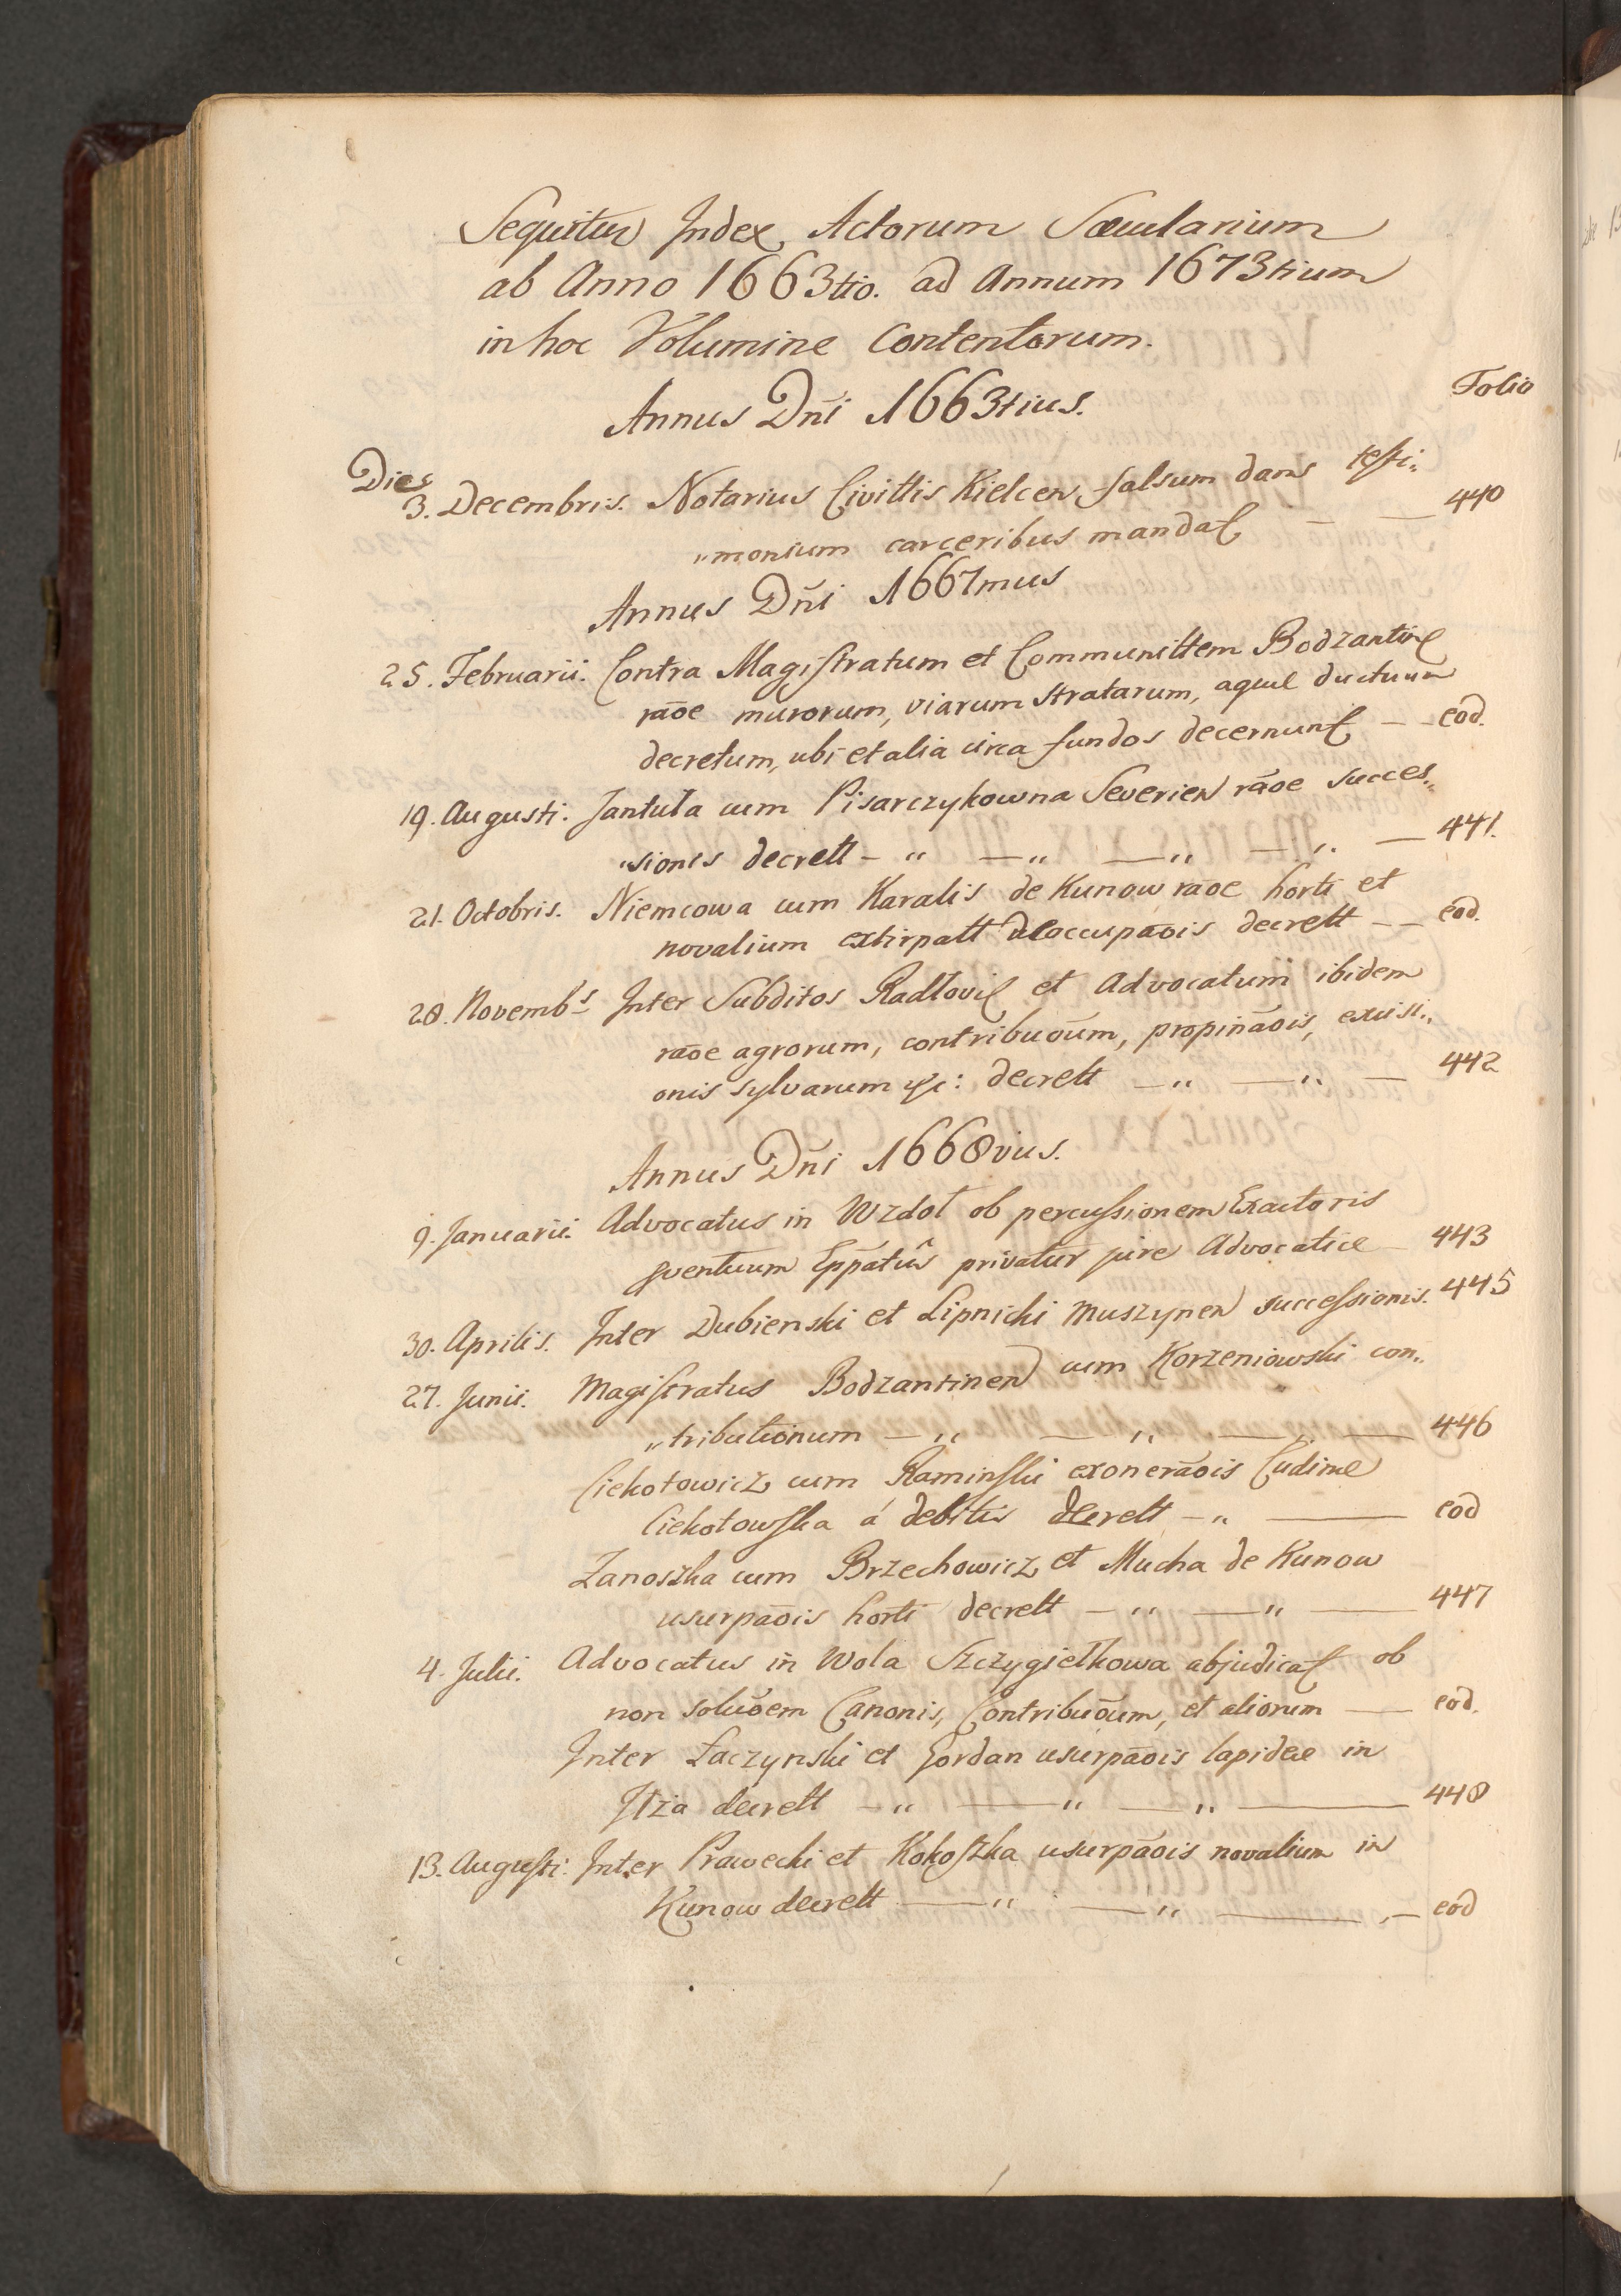 Sequitur Index Actorum Sæcularium
ab Anno 1663tio. ad Annum 1673tium
in hoc Volumine Contentorum.
Folio
Annus Dn̄i 1663tius.
Dies
3. Decembris. Notarius Civittis Kielcen falsum dans testi„
„monium carceribus mandat — — 440
Annus Dn̄i 1667mus
25. Februarii. Contra Magistratum et Communittem Bodzantin
rāoe murorum, viarum stratarum, aquæ ductuum
decretum, ubi et alia circa fundos decernunt — — eōd.
19. Augusti. Jantuła cum Pisarczykowna Severien rāoe succes„
„sionis decrett — „ — „ — „ — „ — 441.
21. Octobris. Niemcowa cum Karalis de Kunow rāoe horti et
novalium extirpatt occupāois decrett — — eōd.
28. Novembs Inter Subditos Radłovi et Advocatum ibidem
rāoe agrorum, contribuōum, propināois, excisi„
onis sylvarum &c: decrett — „ — „ — 442
Annus Dn̄i 1668vus.
9. Januarii. Advocatus in Wzdoł ob percussionem Exactoris
pventuum Epp̄atûs privatur jure Advocatiæ — 443
30. Aprilis. Inter Dubienski et Lipnicki Muszynen successionis. 445
27. Junii. Magistratus Bodzantinen cum Korzeniowski con„
„tributionum — „ — „ — „ — 446
Ciekotowicz cum Kaminski exonerāois
Ciekotowska á debitis decrett — „ — eod
Zanoszka cum Brzechowicz et Mucha de Kunow
usurpāois horti decrett — „ — „ — 447
4. Julii. Advocatus in Wola Szczygiełkowa abjudicat ob
non soluōem Canonis, Contribuōum, et aliorum — eōd.
Inter Łaczynski et Jordan usurpāois lapideæ in
Iłża decrett — „ — „ — „ — 448
13. Augusti. Inter Prawecki et Kokoszka usurpāois novalium in
Kunow decrett — „ — „ — „ — eōd